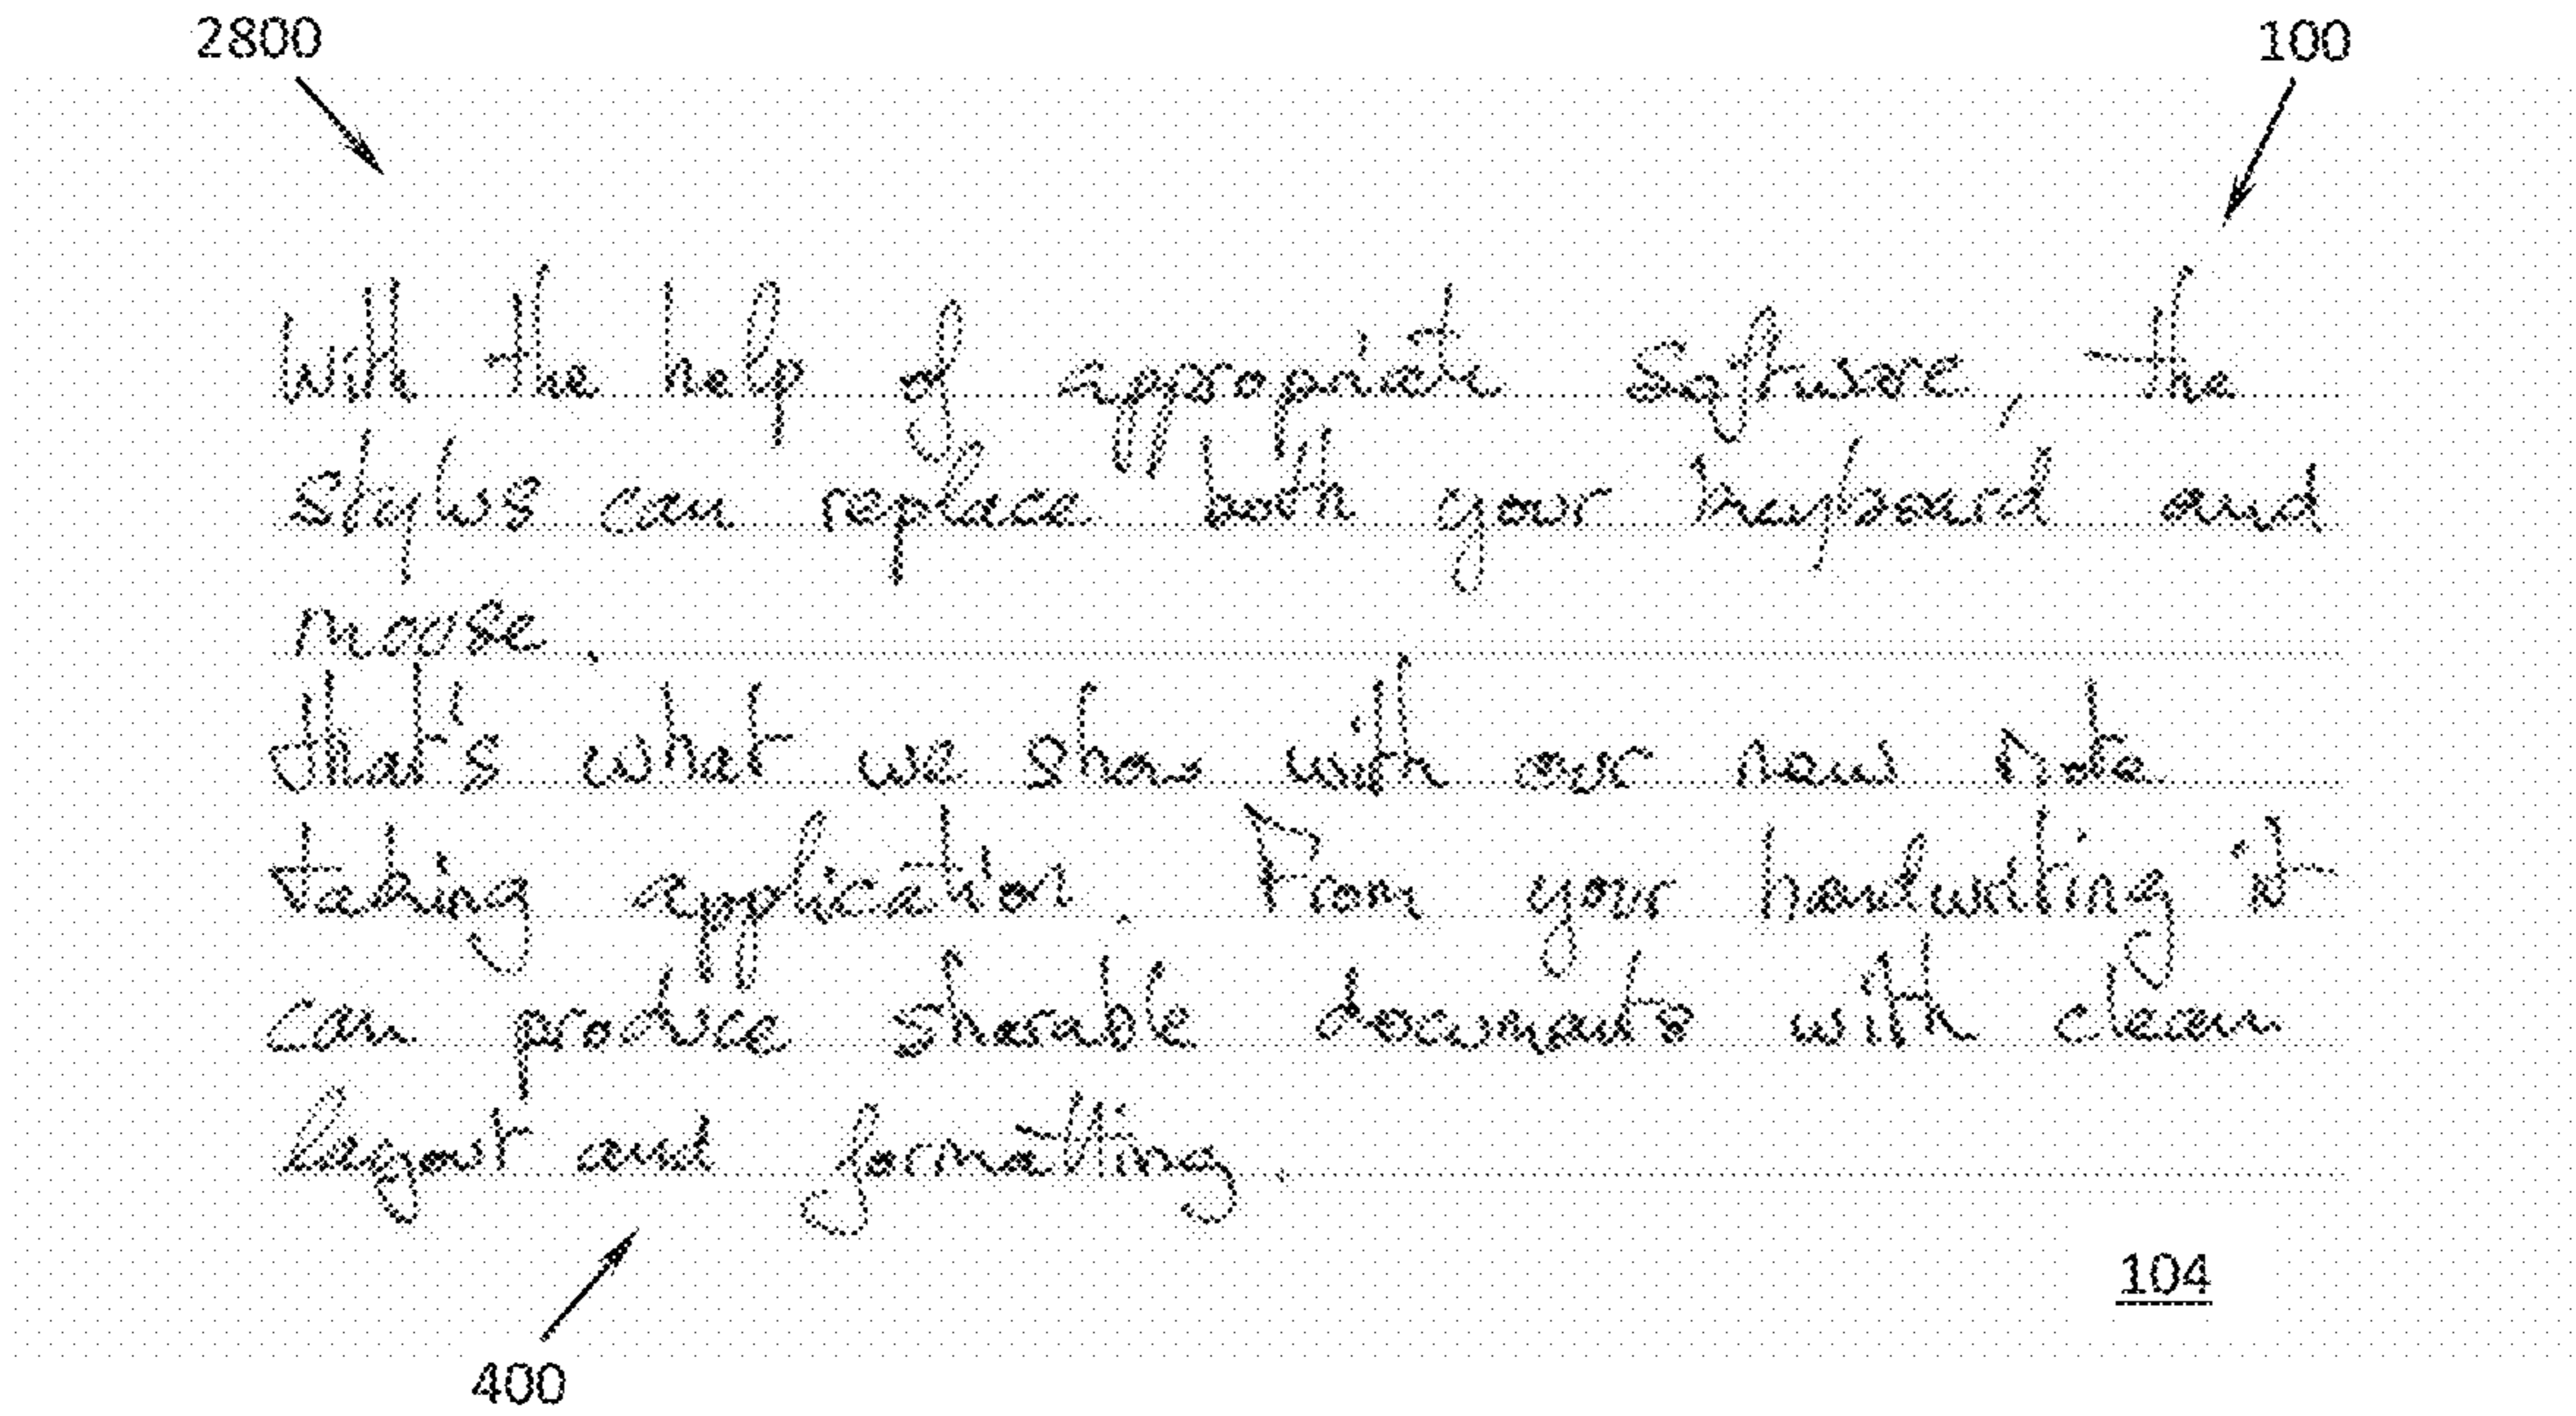 2800 100
With the help of appropriate Software, the
stylus can replace both your keyboard and
moose.
that's what we show with our new note
taking application. From your handwriting it
can produce sharable documents with clean
layout and formatting.
104
400